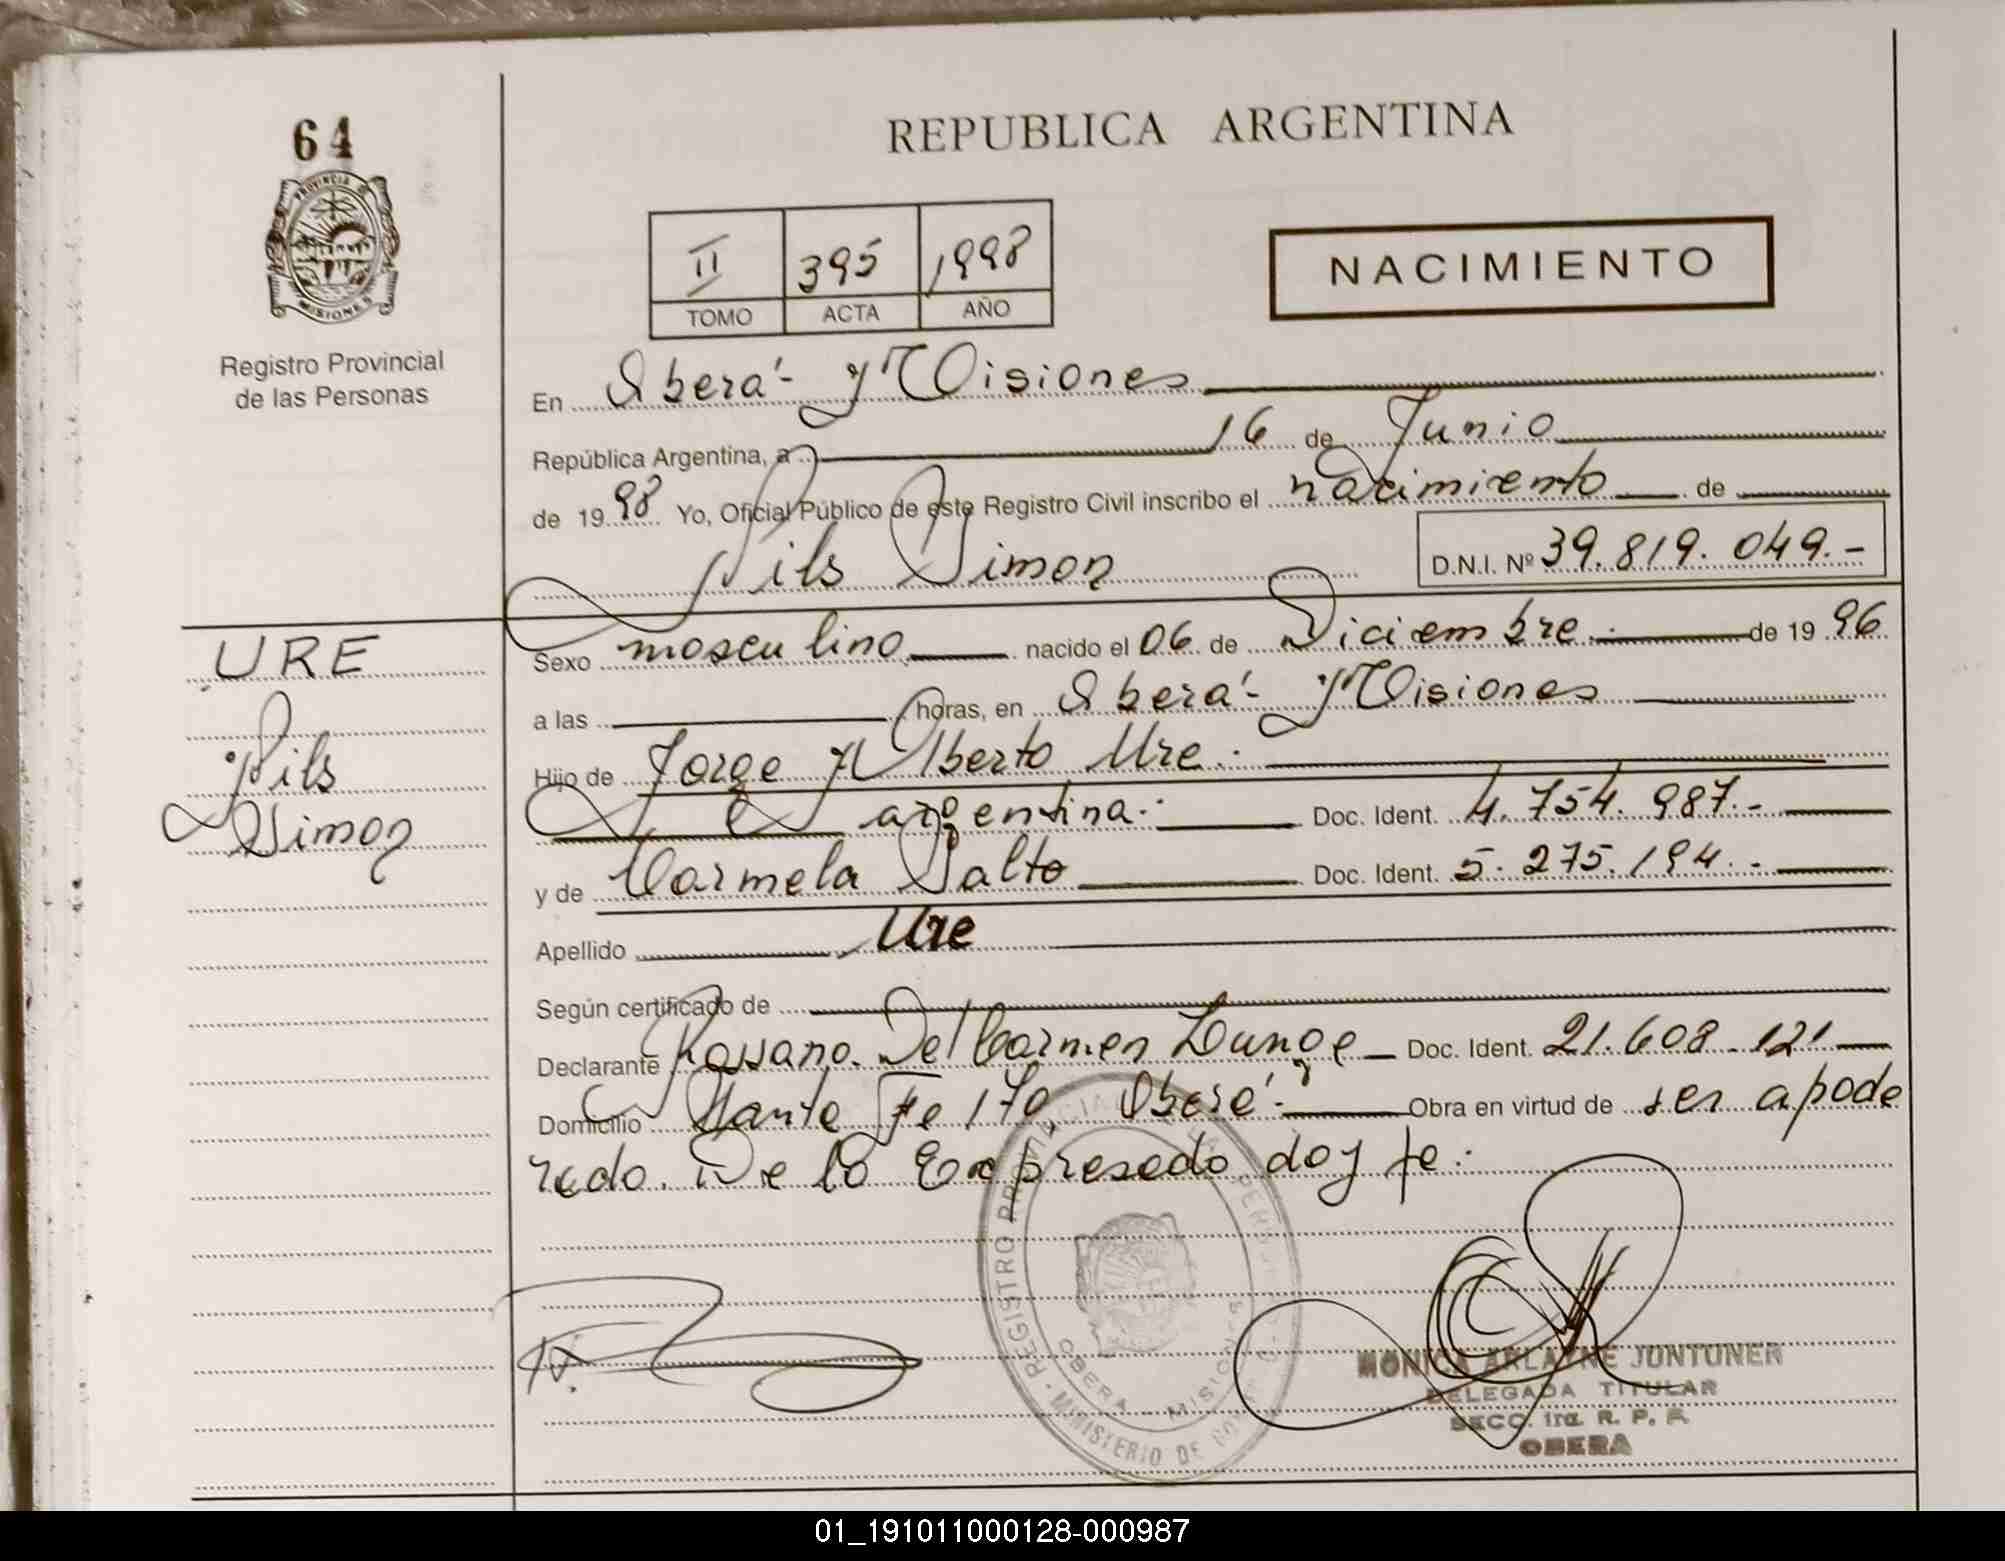 64
PROVINCIA D
MISIONES
Registro Provincial
de las Personas
REPUBLICA ARGENTINA
II 395 1998
TOMO ACTA AÑO
NACIMIENTO
En Oberá - Misiones
República Argentina, a 16 de Junio
de 1998 Yo, Oficial Público de este Registro Civil inscribo el nacimiento de
Nils Simon
D.N.I. Nº 39.819.049.-
URE
Nils
Simon
Sexo masculino nacido el 06 de Diciembre de 1996
a las horas, en Oberá - Misiones
Hijo de Jorge Alberto Ure.
argentina.- Doc. Ident. 4.754.987.-
y de Carmela Salto Doc. Ident. 5.275.194.-
Apellido Ure
Según certificado de
Declarante Rossana Del Carmen Doc. Ident. 21.608.121
Domicilio Santa Fe 170, Oberá - Obra en virtud de ser apode
rado. De lo Expresado doy fe.
REGISTRO PROVINCIAL DE LAS PERSONAS
OBERA MISIONES
MINISTERIO DE GO
MONICA ARLAINE JUNTUNEN
DELEGADA TITULAR
SECC. 1ra. R. P. P.
OBERA
01_191011000128-000987